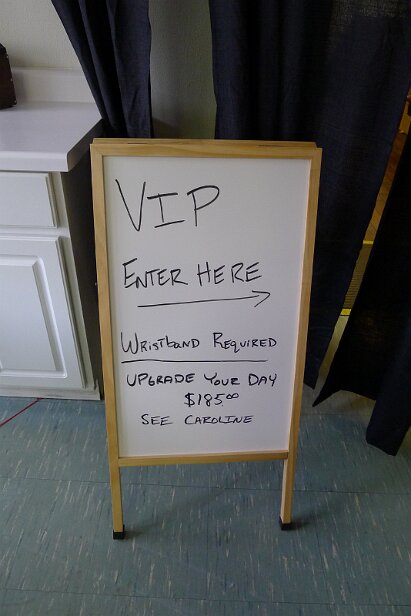 VIP
ENTER HERE
WRISTBAND REQUIRED
UPGRADE YOUR DAY
$185.00
SEE CAROLINE